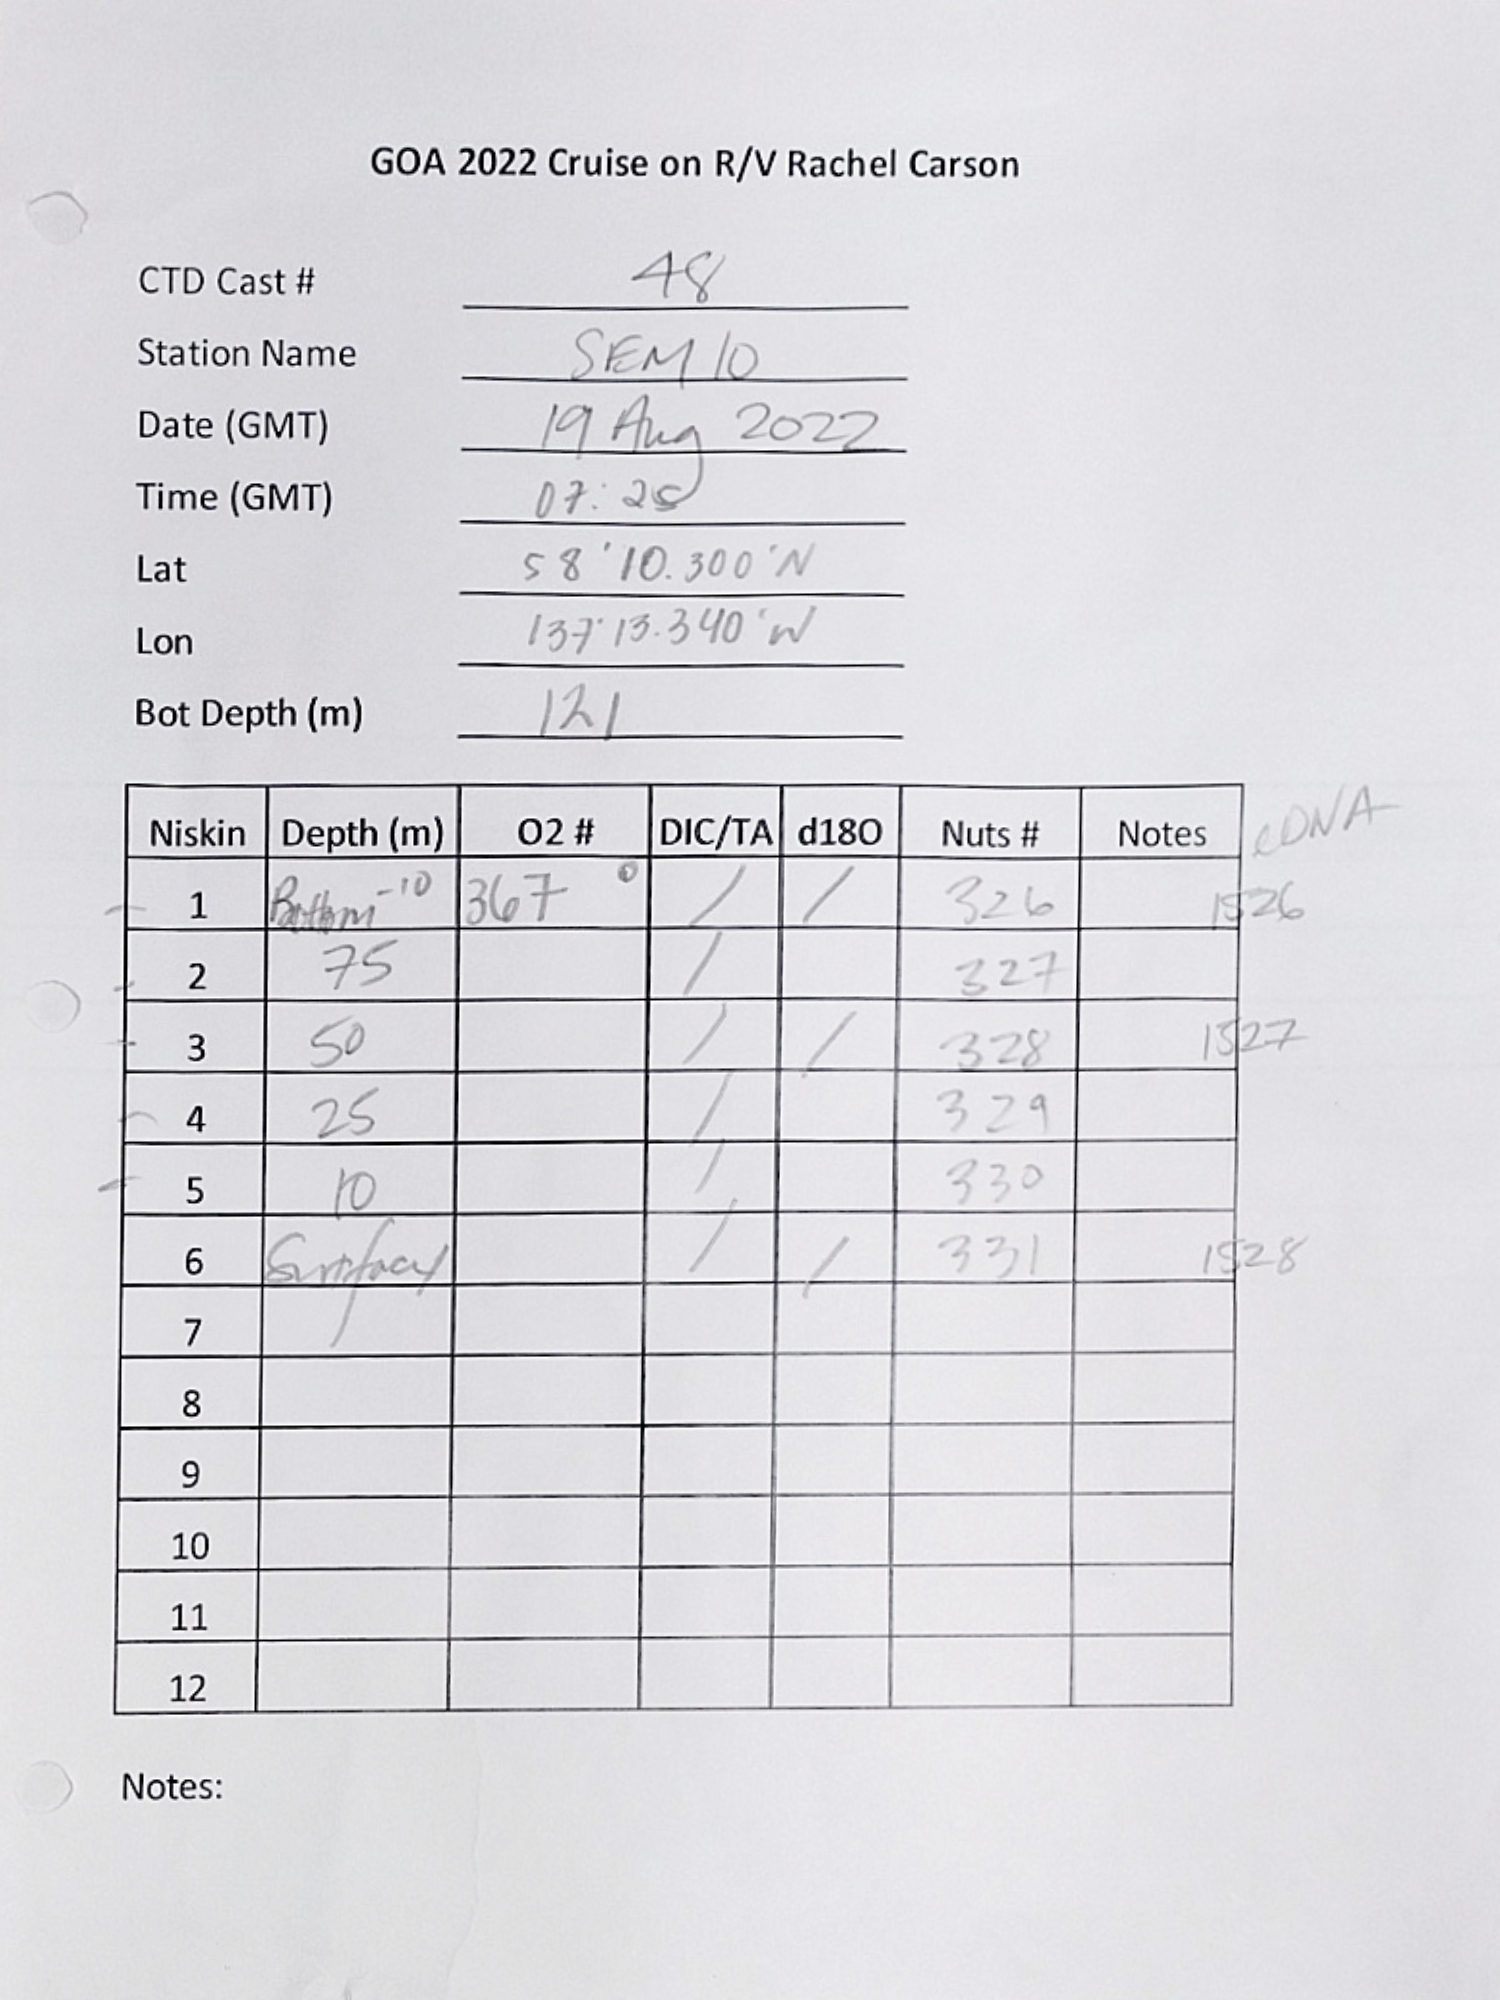 GOA 2022 Cruise on R/V Rachel Carson
CTD Cast # 48
Station Name SEM 10
Date (GMT) 19 Aug 2022
Time (GMT) 07:25
Lat 58°10.300'N
Lon 137°13.340'W
Bot Depth (m) 121
Niskin Depth (m) O2 # DIC/TA d18O Nuts # Notes eDNA
1 Bottom-10 367 0 / / 326 1526
2 75 / 327
3 50 / / 328 1527
4 25 / 329
5 10 / 330
6 Surface / / 331 1528
7
8
9
10
11
12
Notes: